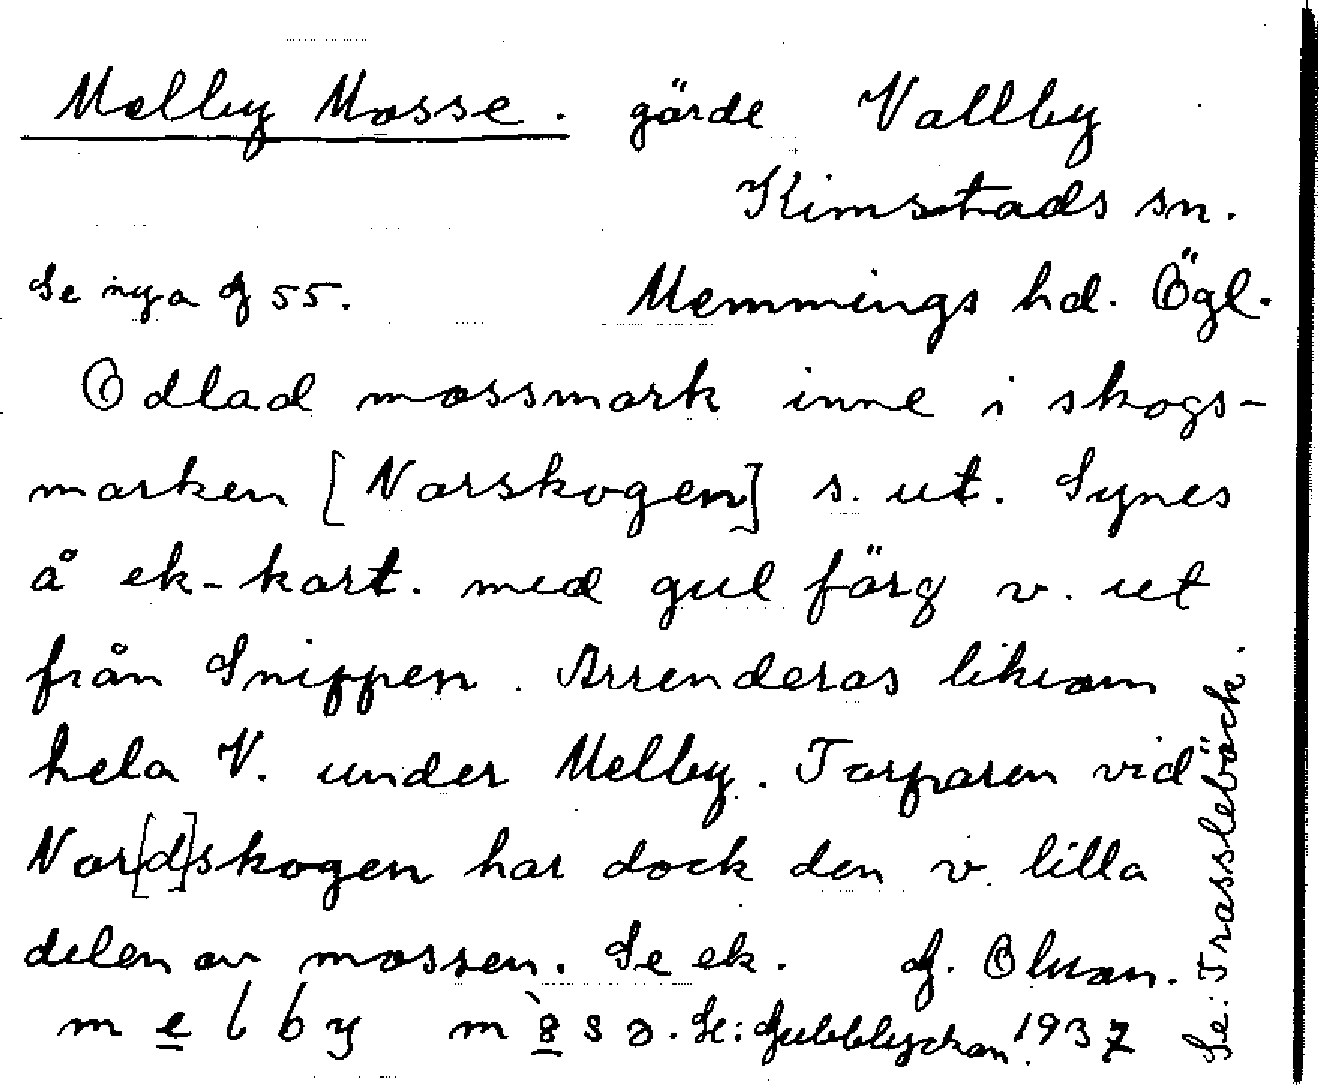 Melby Mosse. gärde Vallby
Kimstads sn.
Se nya 55. Memmings hd. Ögl.
Odlad mossmark inne i skogs-
marken [Norskogen] s. ut. Synes
å ek-kart. med gul färg v. ut
från Snippen. Arrenderas liksom
hela V. under Melby. Torparen vid
Nor[d]skogen har dock den v. lilla
delen av mossen. Se ek.
melby Se: Gubblyckan 1937
Se: Trasslebäck.